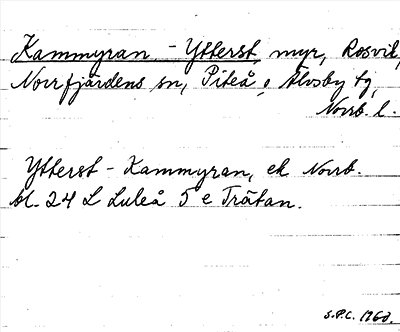 Kammyran - Ytterst, myr, Rosvik,
Norrfjärdens sn, Piteå o Älvsby tg,
Norrb. l.
Ytterst - Kammyran, ek Norrb.
bl. 24 L Luleå 5 e Trätan.
S.P.C. 1960.